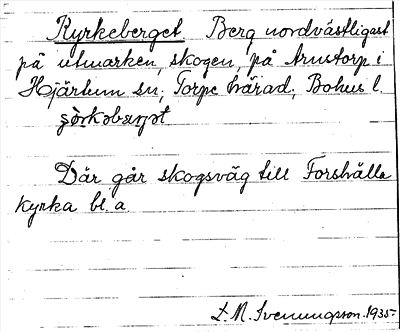 Kyrkeberget Berg nordvästligast
på utmarken, skogen, på Arnstorp i
Hjärtum sn, Torpe härad, Bohus l.

Där går skogsväg till Forshälla
kyrka bl. a.
1935